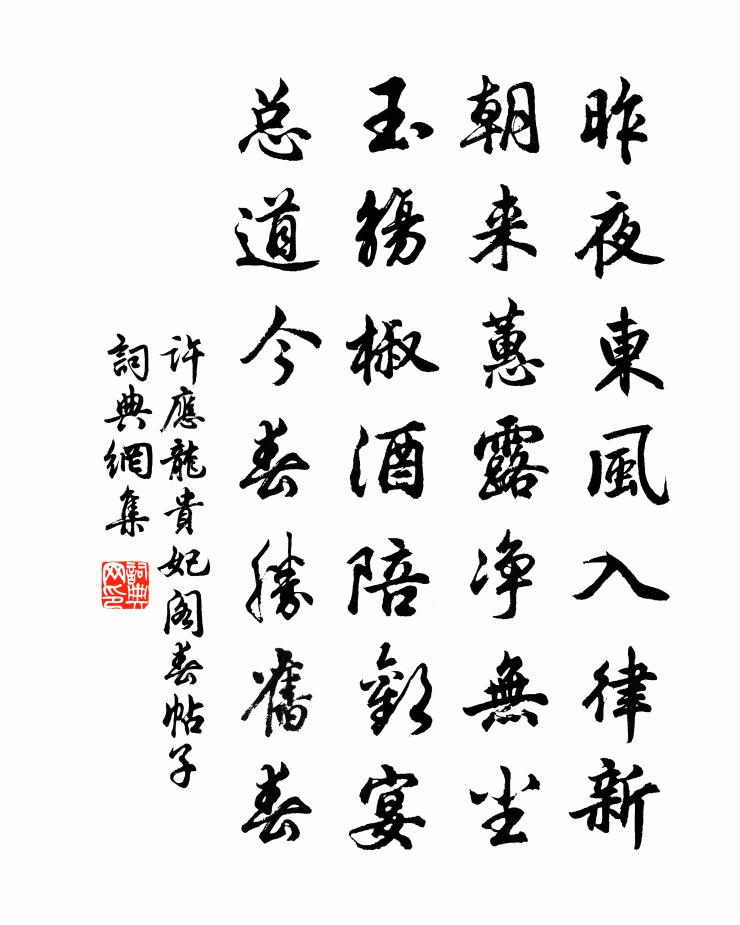 昨夜東風入律新
朝来蕙露净無尘
玉觴椒酒陪歡宴
总道今春勝舊春
许應龍貴妃阁春帖子
詞典網集
詞典网印